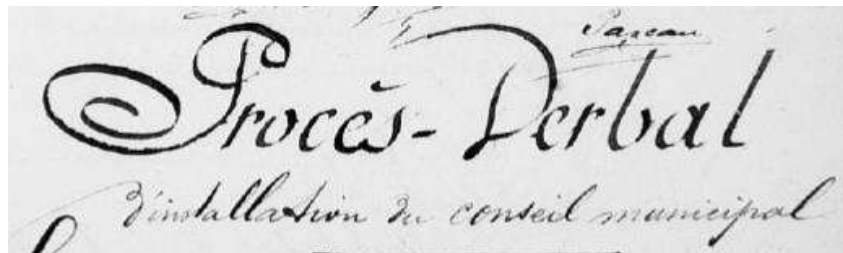 Procès-Verbal
d'installation du conseil municipal